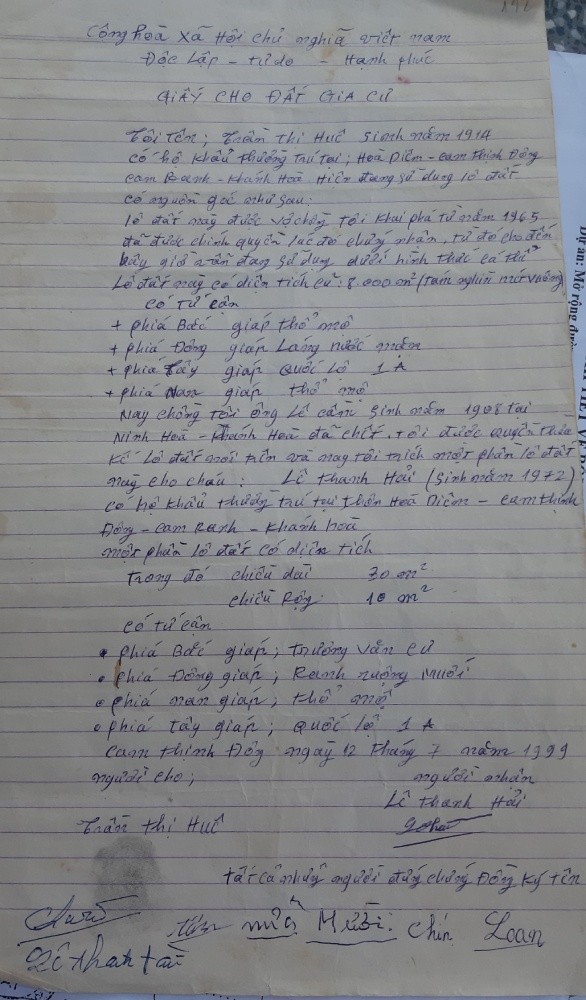 Công hoà xã Hội chủ nghĩa việt nam
Độc Lập - tự do - Hạnh phúc
GIẤY CHO ĐẤT GIA CƯ
Tôi Tên; Trần Thị Huê sinh năm 1914
có hộ khẩu thường trú tại; Hoà Diêm - cam thịnh Đông
cam Ranh - Khánh Hoà Hiện đang sử dụng lô đất
có nguồn gốc như sau:
lô đất nay được vợ chồng tôi khai phá từ năm 1965
đã được chính quyền lúc đó chứng nhận, từ đó cho đến
bây giờ vẫn đang sử dụng dưới hình thức cá thể
Lô đất nay có diện tích cũ: 8.000 m² (tám nghìn mét vuông)
có tứ cận
+ phiá Bắc giáp thổ mộ
+ phiá Đông giáp Lang nước mặn
+ phiá Tây giáp Quốc lộ 1A
+ phiá Nam giáp thổ mộ
Nay chồng tôi ông Lê cầm sinh năm 1908 tại
Ninh Hoà - Khánh Hoà đã chết. tôi được quyền thừa
kế lô đất nói trên và nay tôi trích một phần lô đất
này cho cháu: Lê thanh Hải (sinh năm 1972)
có hộ khẩu thường trú tại thôn Hoà Diêm - cam thịnh
Đông - cam Ranh - Khánh hoà
một phần lô đất có diện tích
Trong đó chiều dài 30 m²
chiều Rộng: 10 m²
có tứ cận
• phiá Bắc giáp; Trương văn cư
• phiá Đông giáp; Ranh ruộng muối
• phiá nam giáp; thổ mộ
• phiá tây giáp; Quốc lộ 1A
cam thịnh Đông ngày 12 tháng 7 năm 1999
người cho; người nhận
Lê thanh Hải
Trần thị Huê
tất cả những người đứng chứng Đồng Ký tên
năm mười chín Loan
Dự án: Mở rộng